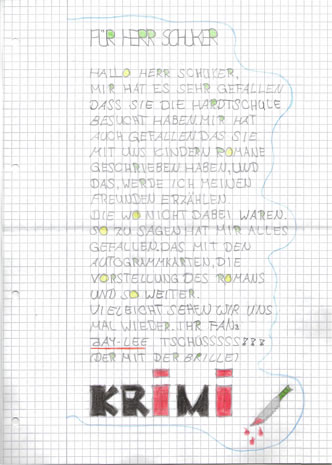 FÜR HERR SCHÜKER
HALLO HERR SCHÜKER,
MIR HAT ES SEHR GEFALLEN
DASS SIE DIE HARDTSCHULE
BESUCHT HABEN. MIR HAT
AUCH GEFALLEN DAS SIE
MIT UNS KINDERN ROMANE
GESCHRIEBEN HABEN, UND
DAS, WERDE ICH MEINEN
FREUNDEN ERZÄHLEN
DIE WO NICHT DABEI WAREN.
SO ZU SAGEN HAT MIR ALLES
GEFALLEN. DAS MIT DEN
AUTOGRAMMKARTEN, DIE
VORSTELLUNG DES ROMANS
UND SO WEITER.
VIELEICHT SEHEN WIR UNS
MAL WIEDER. IHR FAN:
JAY-LEE TSCHÜSSSSS
(DER MIT DER BRILLE)
KRIMI